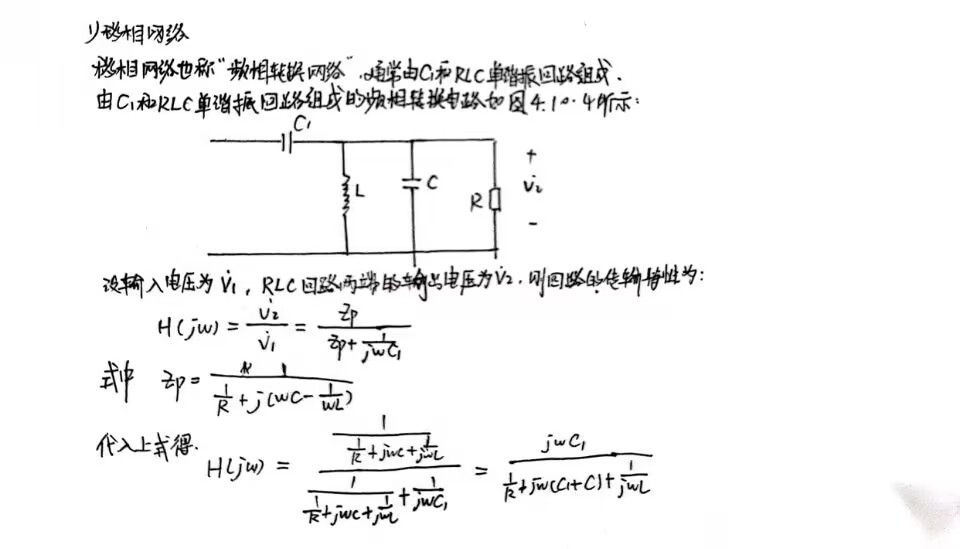 1)移相网络
移相网络也称“频相转换网络”,通常由C₁和RLC单谐振回路组成.
由C₁和RLC单谐振回路组成的频相转换电路如图4.10.4所示:
C₁
L C R + V̇₂ -
设输入电压为V̇₁, RLC回路两端的输出电压为V̇₂, 则回路的传输特性为:
H(jw) = V̇₂/V̇₁ = Zp/(Zp+1/(jwC₁))
式中 Zp = 1/(1/R+j(wC-1/(wL)))
代入上式得.
H(jw) = (1/(1/R+jwC+1/(jwL)))/(1/(1/R+jwC+1/(jwL))+1/(jwC₁)) = jwC₁/(1/R+jw(C₁+C)+1/(jwL))